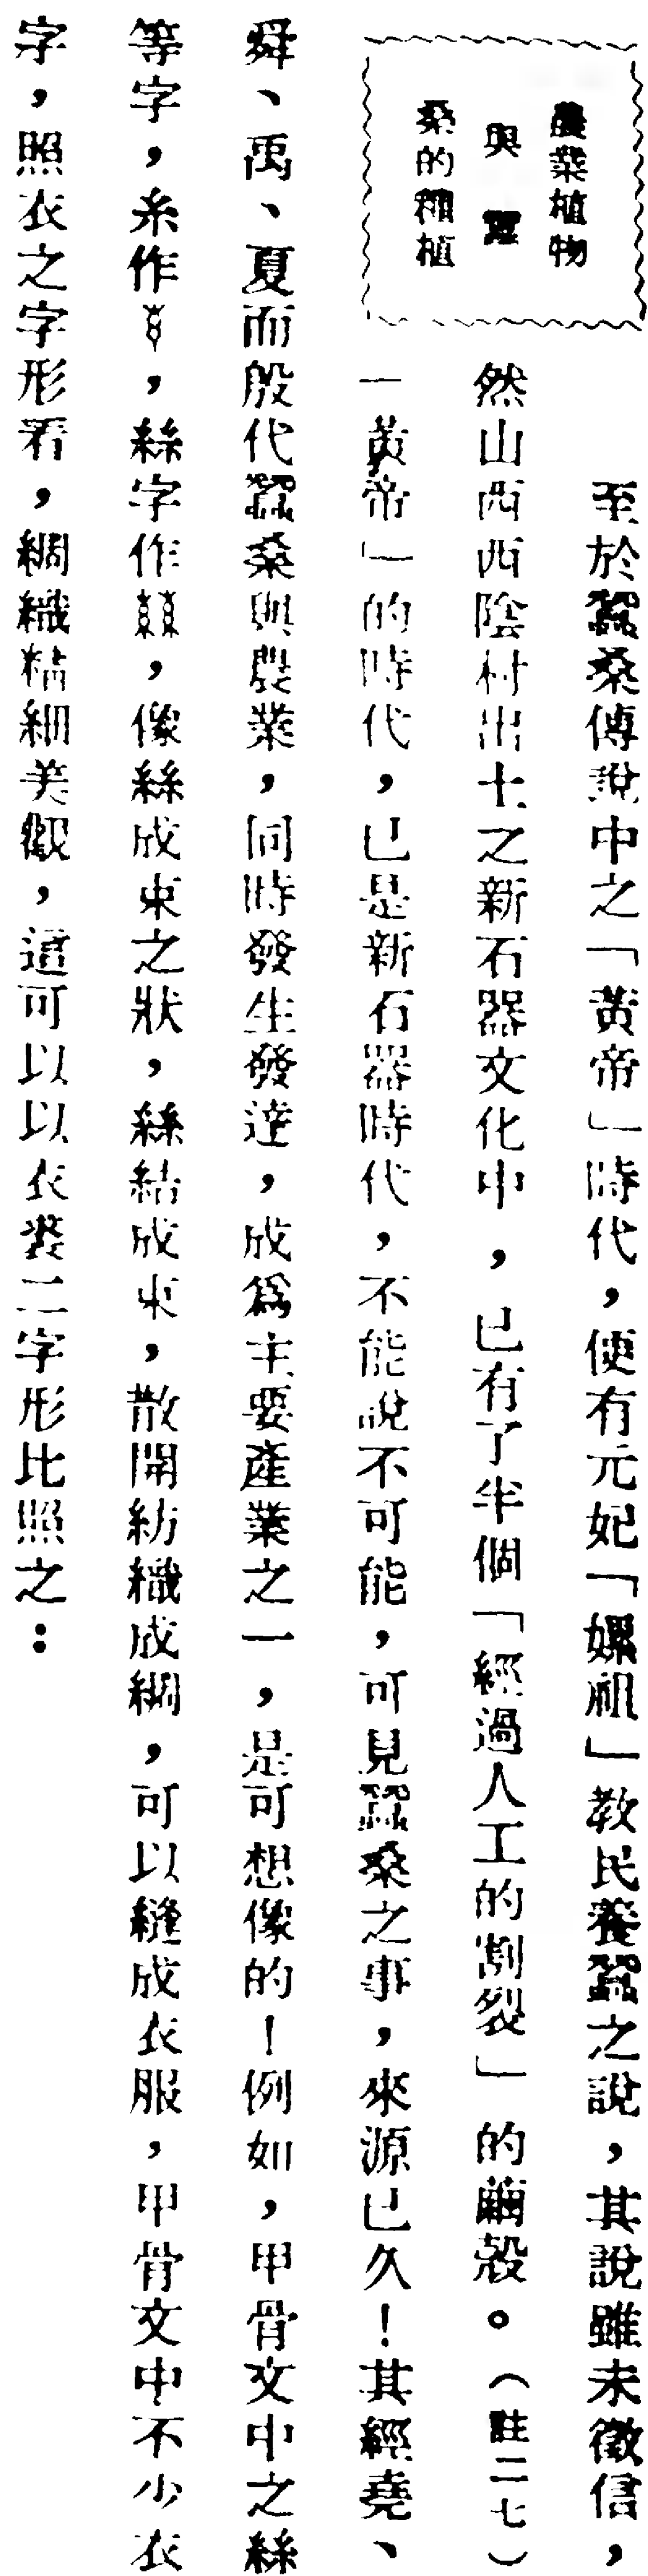 農業植物
與蠶
桑的種植
至於蠶桑傳說中之「黃帝」時代，便有元妃「嫘祖」教民養蠶之說，其說雖未徵信，
然山西西陰村出土之新石器文化中，已有了半個「經過人工的割裂」的繭殼。（註二七）
「黃帝」的時代，已是新石器時代，不能說不可能，可見蠶桑之事，來源已久！其經堯、
舜、禹、夏而殷代蠶桑與農業，同時發生發達，成爲主要產業之一，是可想像的！例如，甲骨文中之絲
等字，糸作，絲字作，像絲成束之狀，絲結成束，散開紡織成綢，可以縫成衣服，甲骨文中不少衣
字，照衣之字形看，綢織精細美觀，這可以以衣裘二字形比照之：